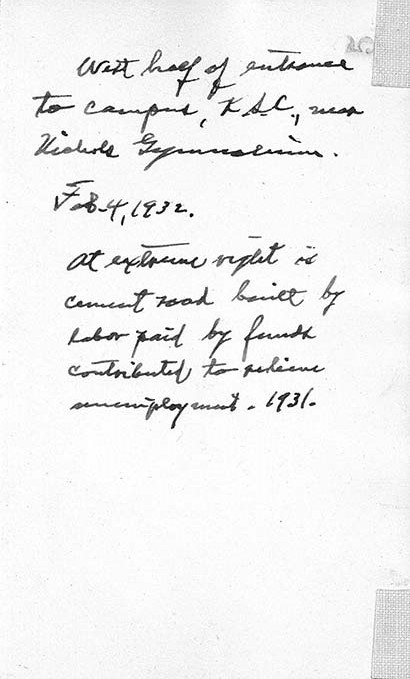 West half of entrance
to campus, K.S.C., near
Nichols Gymnasium.
Feb. 4, 1932.
At extreme right is
cement road built by
labor paid by funds
contributed to relieve
unemployment. 1931.